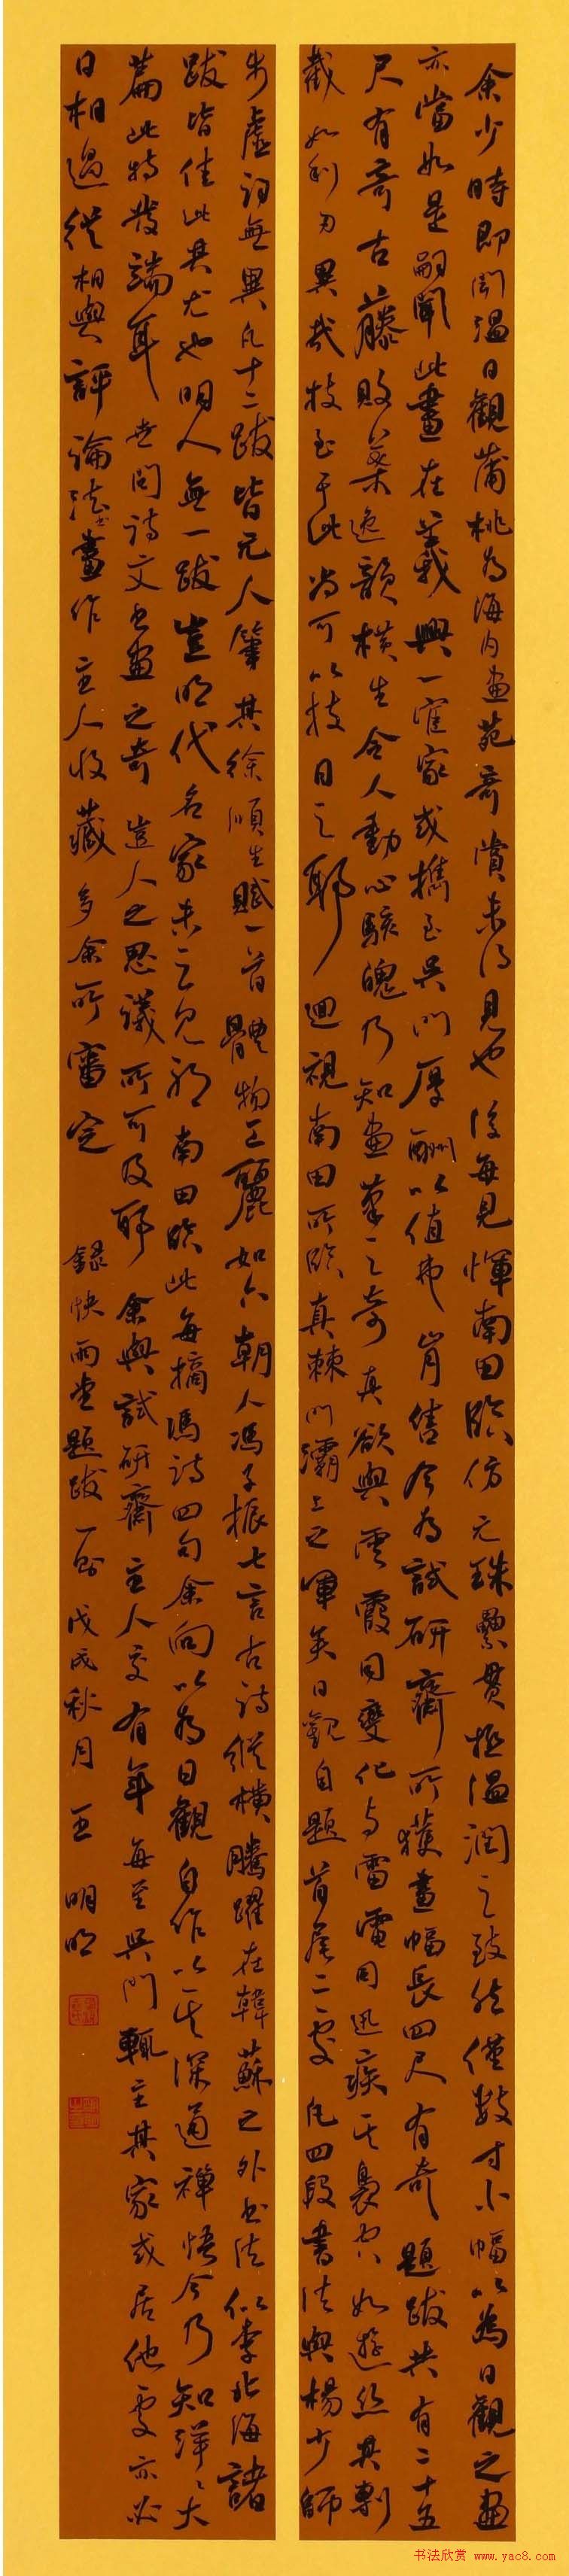 余少時即聞溫日觀蒲桃為海内畫苑奇賞未得見也後每見惲南田臨仿元珠纍貫極溫潤之致然僅數寸小幅以為日觀之畫
亦當如是嗣聞此畫在義興一宦家或攜至吳門厚酬以值弗肯售今為試研齋所獲畫幅長四尺有奇題跋共有二十五
尺有奇古藤敗葉逸韻橫生令人動心駭魄乃知畫筆之奇真欲與雲霞同變化與雷電同迅疾其裊空如遊絲其剸
截如利刃異哉技至于此尚可以技目之耶迴視南田所臨真棘門灞上之軍矣日觀自題首尾二處凡四段書法與楊少師
步虛詞無異凡十二跋皆元人筆其徐順生賦一首體物工麗如六朝人馮子振七言古詩縱橫騰躍在韓蘇之外書法似李北海諸
跋皆佳此其尤也明人無一跋豈明代名家未之見耶南田臨此每摘馮詩四句余向以為日觀自作以其深通禪悟今乃知洋洋大
篇此特發端耳世間詩文書畫之奇豈人之思議所可及耶余與試研齋主人交有年每至吳門輒主其家或居他處亦必
日相過從相與評論法書畫作主人收藏多余所審定 錄快雨堂題跋一則戊戌秋月王明明
书法欣赏 www.yac8.com